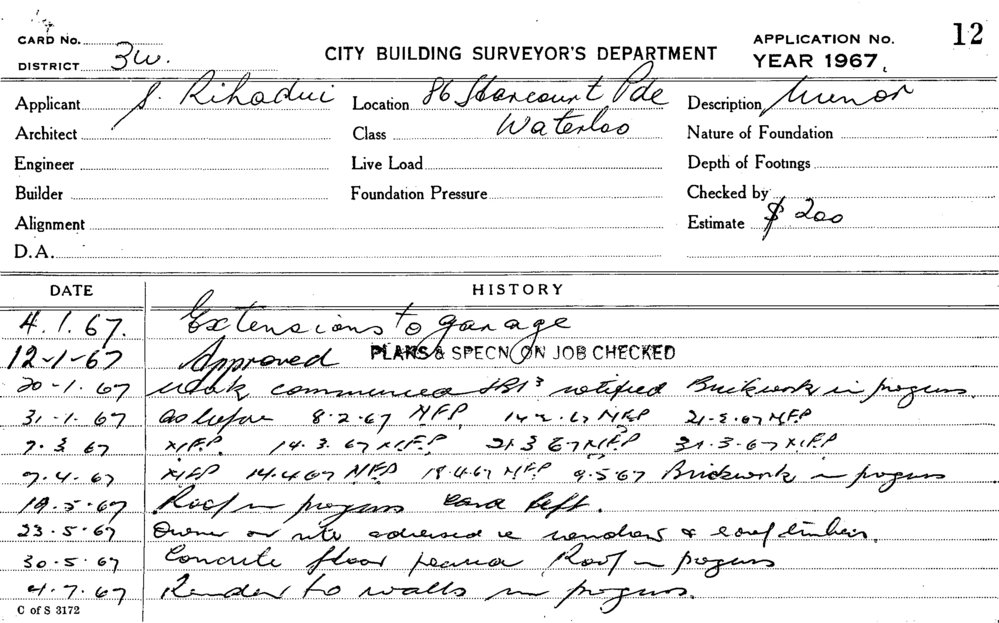 CARD No.
DISTRICT 3w.
CITY BUILDING SURVEYOR'S DEPARTMENT
APPLICATION No. 12
YEAR 1967
Applicant S. Rihadui Location 86 Harcourt Pde Description Minor
Architect Class Waterloo Nature of Foundation
Engineer Live Load Depth of Footings
Builder Foundation Pressure Checked by
Alignment Estimate $ 200
D.A.
DATE HISTORY
4.1.67. Extensions to garage
12-1-67 Approved PLANS & SPECN ON JOB CHECKED
20-1.67 Work commenced notified Brickwork in progress.
31-1.67 as before 8-2-67 NFP 14-2-67 NFP 21-2-67 NFP
7.3.67 NFP. 14.3.67 NFP. 21.3.67 NFP 31-3-67 NFP
7.4.67 NFP 14.4.67 NFP 18.4.67 NFP 9.5.67 Brickwork in progress
19.5.67 Roof in progress card left.
23.5.67 Owner on site advised re &
30.5.67 Concrete floor Roof in progress
4.7.67 Render to walls in progress.
C of S 3172